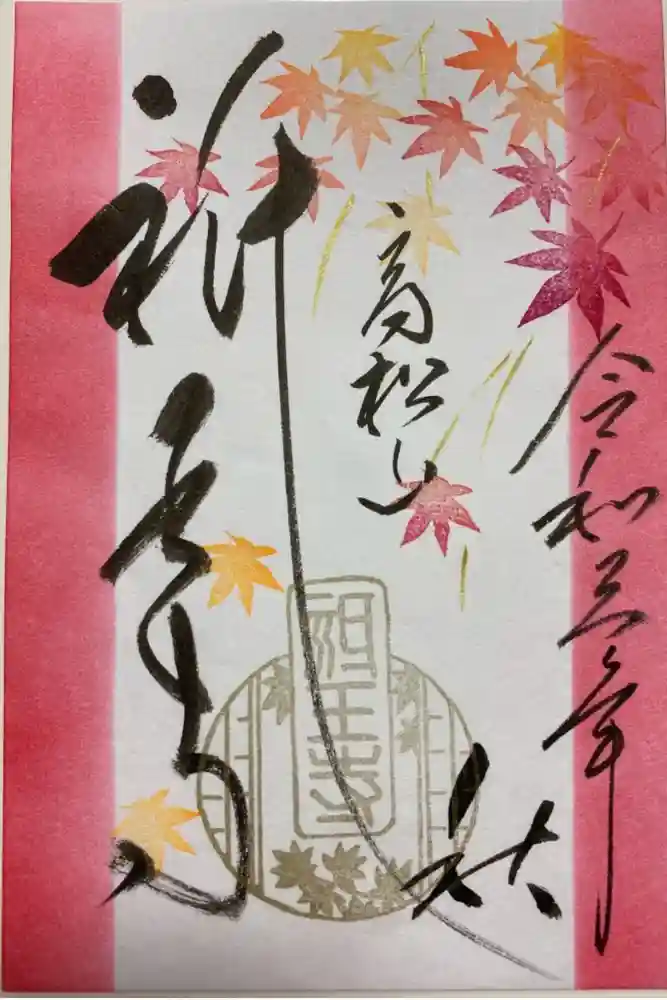 令和三年
秋
高松山
祇王寺
祇王寺